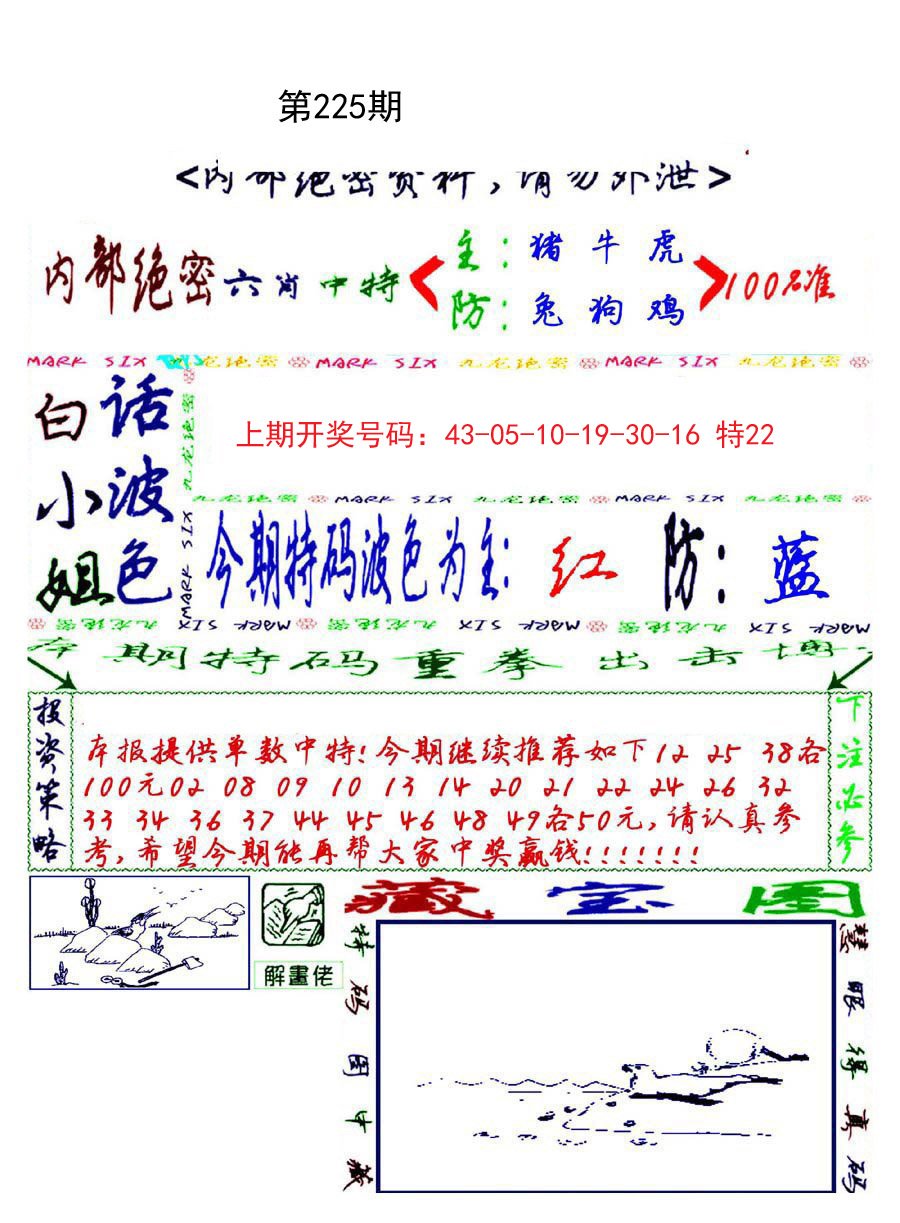 第225期
<内部绝密资料，请勿外泄>
内部绝密六肖中特
主：猪 牛 虎
防：兔 狗 鸡
100%准
MARK SIX 九龙绝密 MARK SIX 九龙绝密 MARK SIX 九龙绝密
白小姐
话波色
九龙绝密
MARK SIX
上期开奖号码：43-05-10-19-30-16 特22
九龙绝密 MARK SIX 九龙绝密 MARK SIX 九龙绝密
今期特码波色为主：红 防：蓝
九龙绝密 MARK SIX 九龙绝密 MARK SIX 九龙绝密 MARK SIX
本期特码重拳出击博
投资策略
本报提供单数中特!今期继续推荐如下12 25 38各
100元02 08 09 10 13 14 20 21 22 24 26 32
33 34 36 37 44 45 46 48 49各50元,请认真参
考,希望今期能再帮大家中奖赢钱!!!!!!!
下注必参
解畫佬
藏宝图
特码图中藏
慧眼得真码